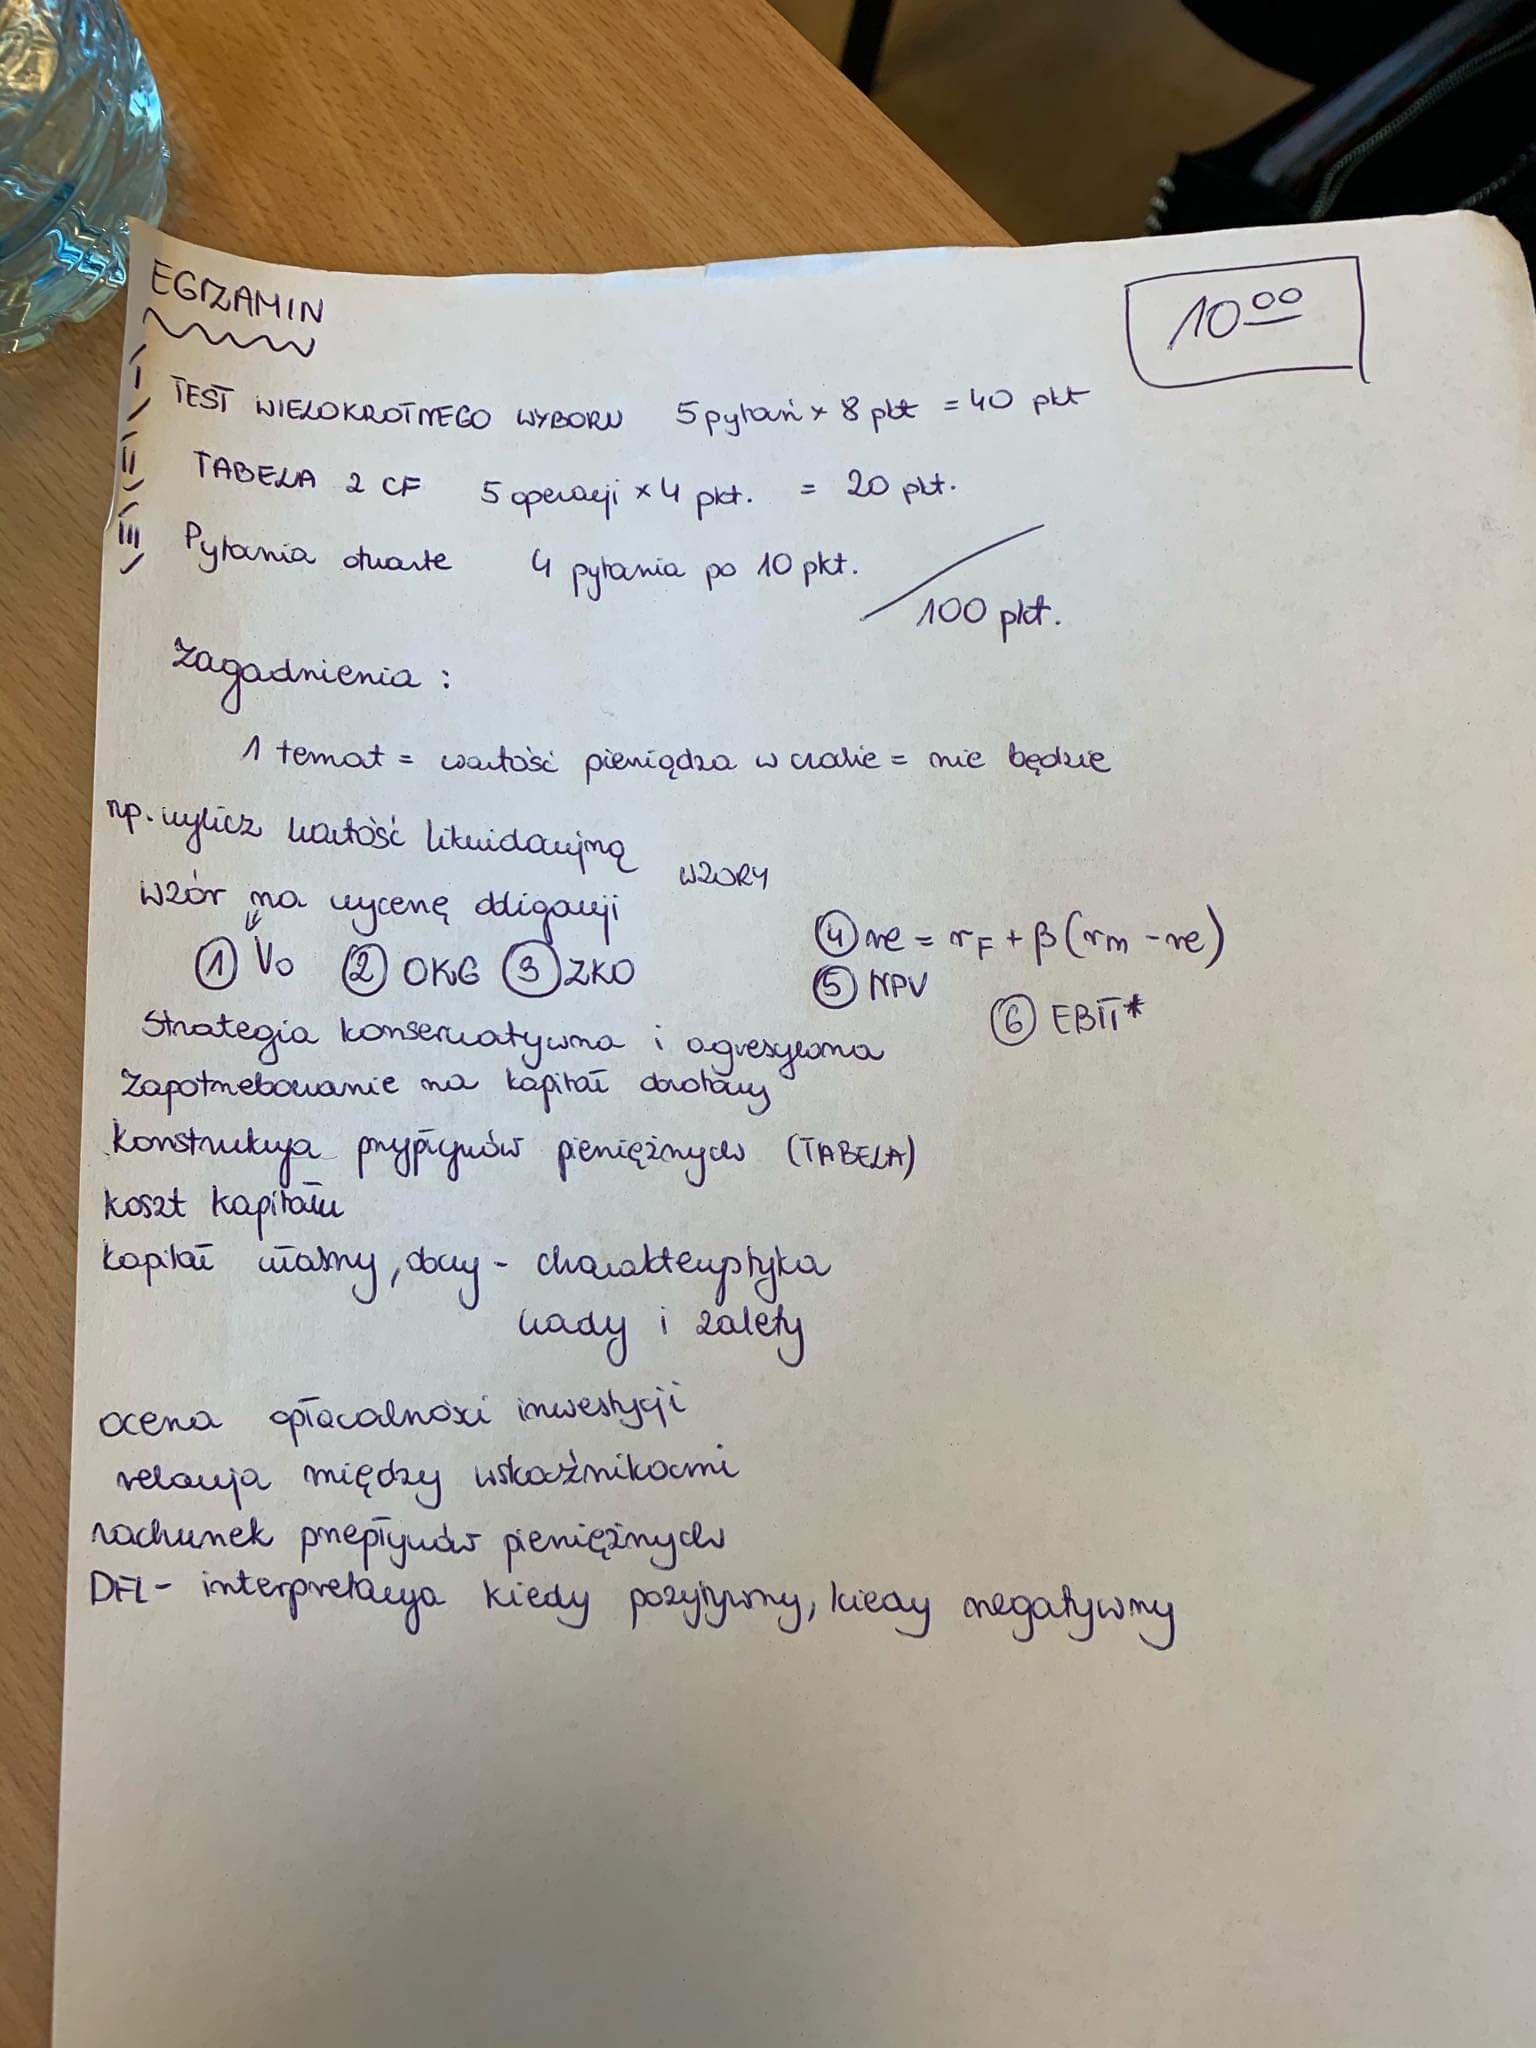 EGZAMIN
10⁰⁰
I TEST WIELOKROTNEGO WYBORU 5 pytań × 8 pkt = 40 pkt
II TABELA 2 CF 5 operacji × 4 pkt. = 20 pkt.
III Pytania otwarte 4 pytania po 10 pkt.
100 pkt.
Zagadnienia :
1 temat = wartość pieniądza w czasie = nie będzie
np. wylicz wartość likwidacyjną
wzór na wycenę obligacji WZORY
① V₀ ② OKG ③ ZKO
④ re = rF + β (rm - re)
⑤ NPV
⑥ EBIT*
Strategia konserwatywna i agresywna
Zapotrzebowanie na kapitał obrotowy
Konstrukcja przypływów pieniężnych (TABELA)
Koszt kapitału
Kapitał własny, obcy - charakterystyka
wady i zalety
ocena opłacalności inwestycji
relacja między wskaźnikami
rachunek przepływów pieniężnych
DFL - interpretacja kiedy pozytywny, kiedy negatywny